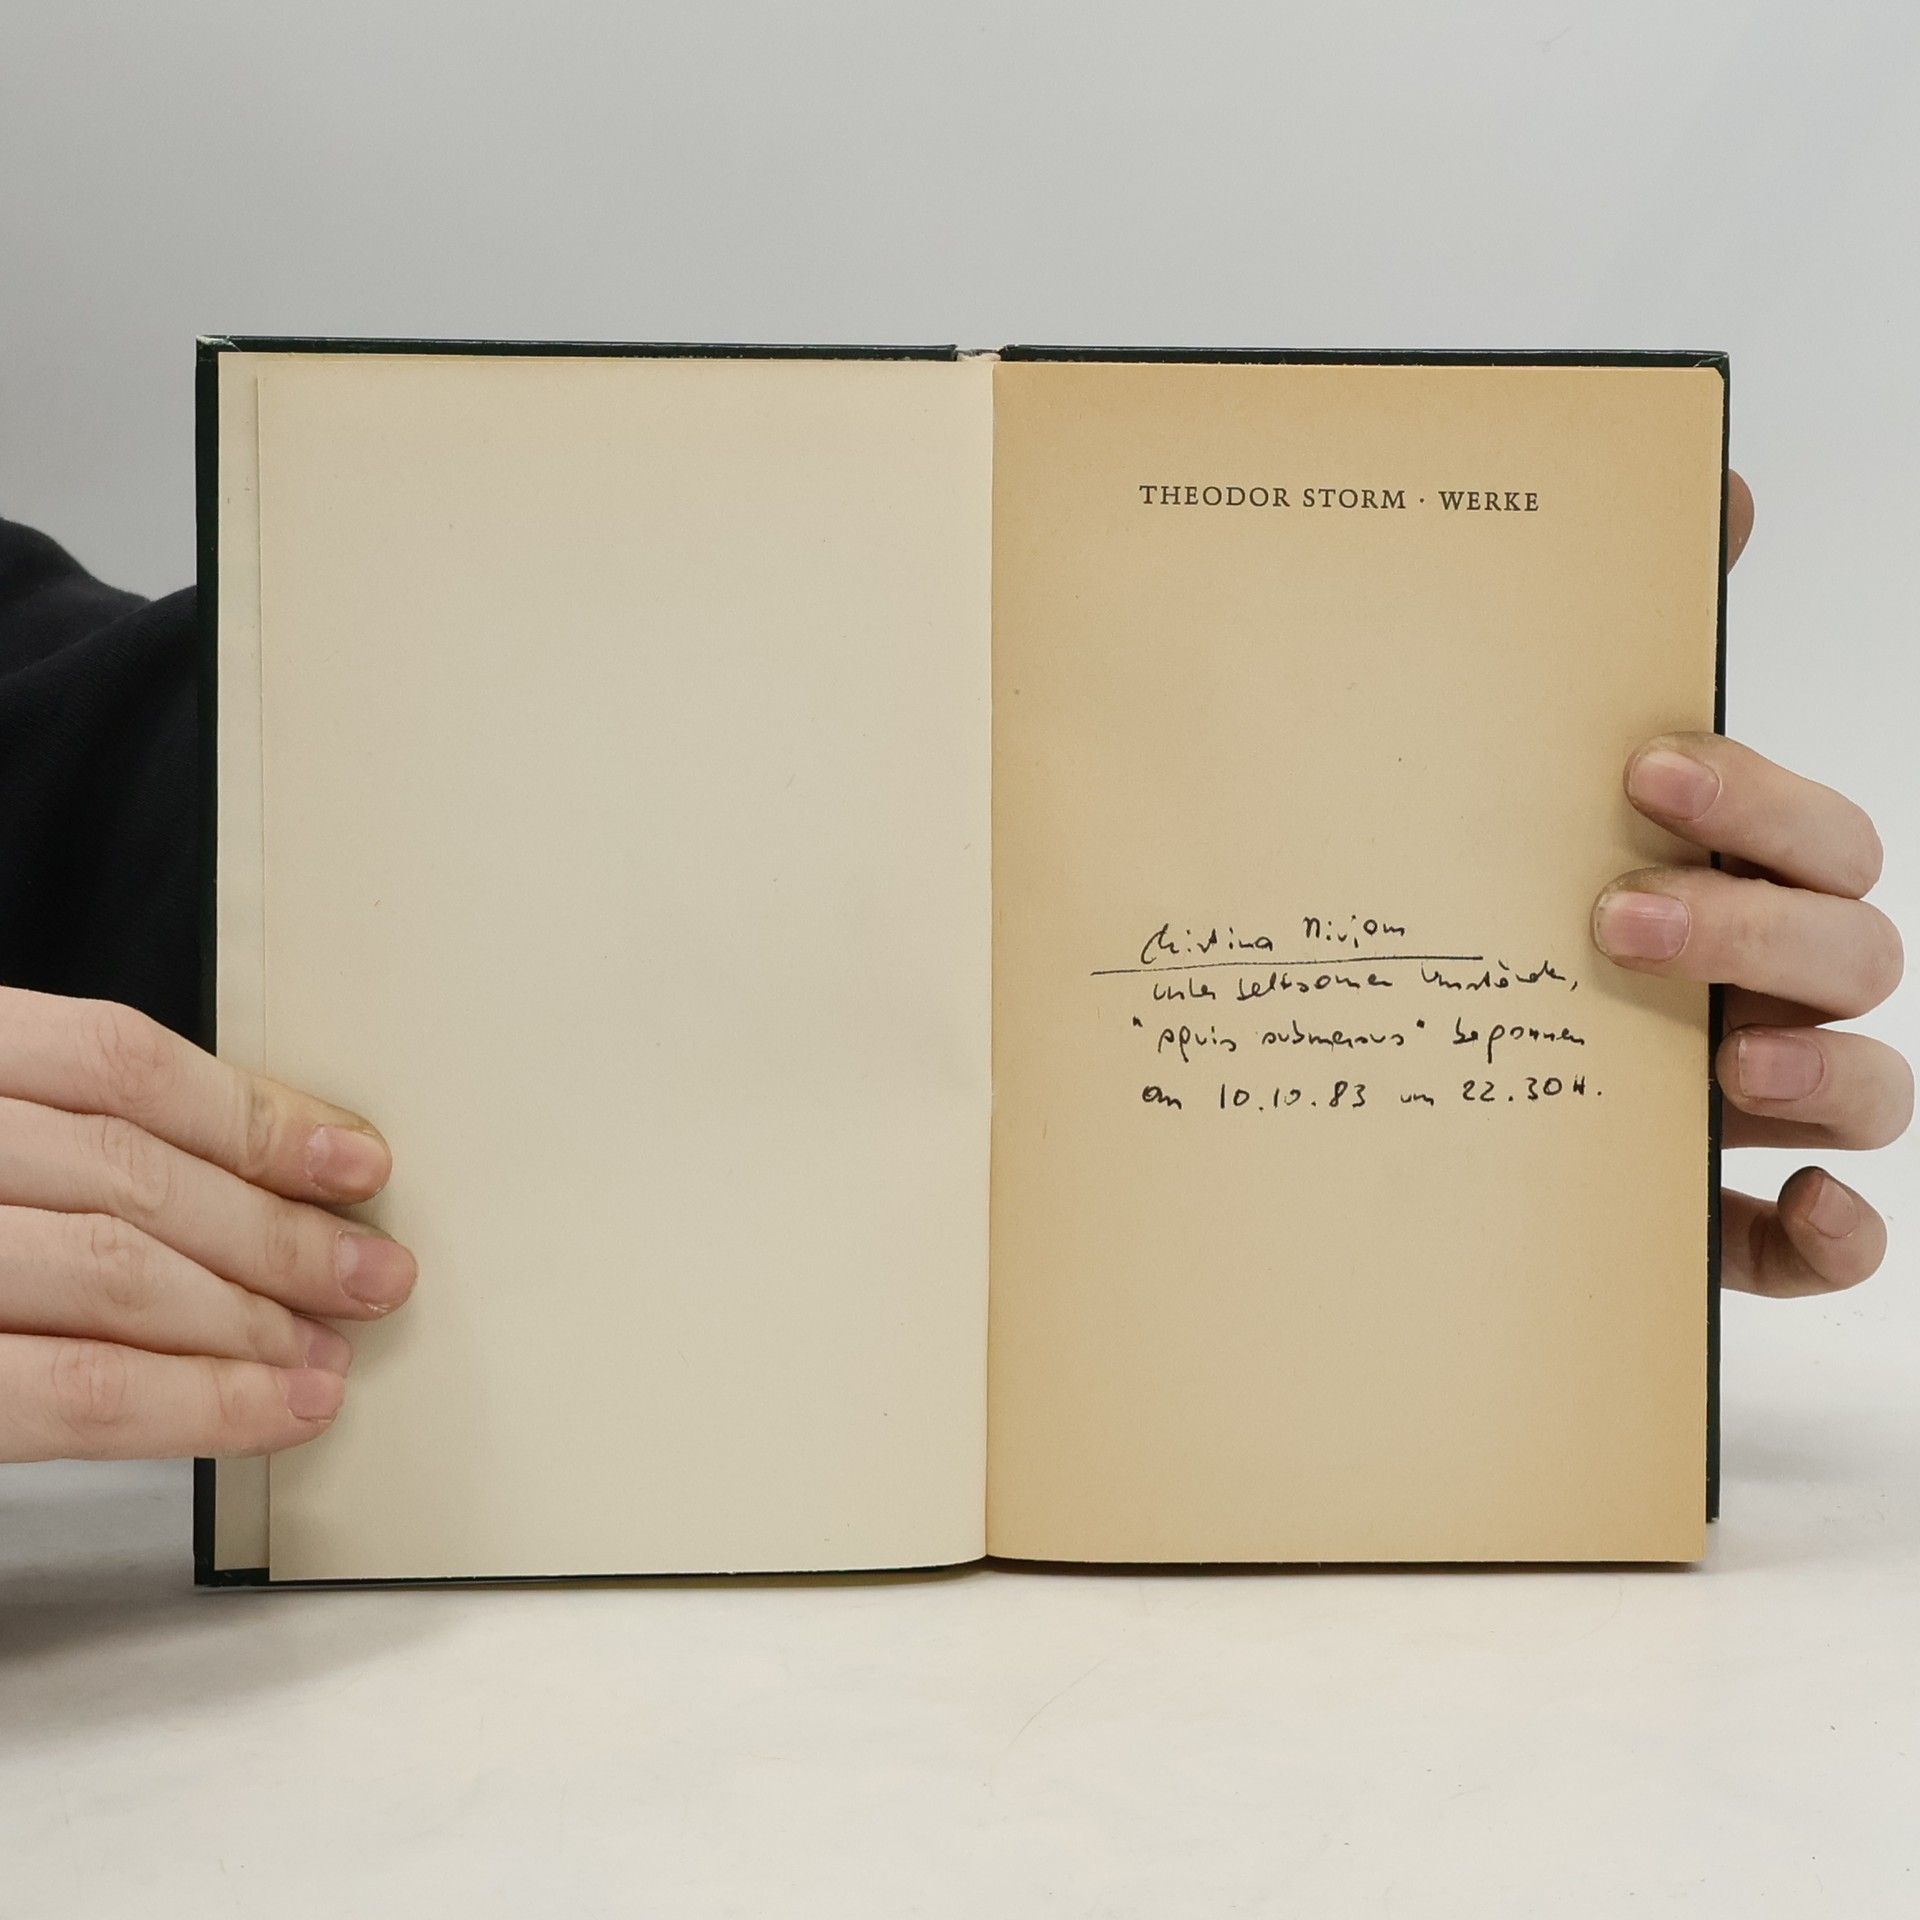 THEODOR STORM · WERKE
Christina
unter seltsamen Umständen,
"aquis submersus" begonnen
am 10.10.83 um 22.30 H.